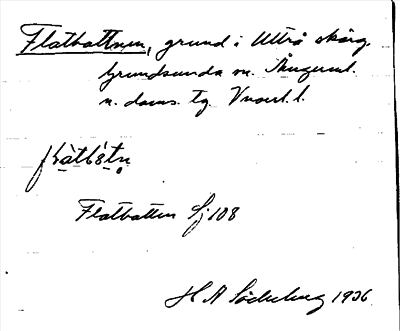 Flatbottnen, grund i Ulvö skärg.
Grundsunda sn. Ångerml.
n. doms. tg. V norrl. l.
Flatbotten Sj 108
H A Söderberg 1936